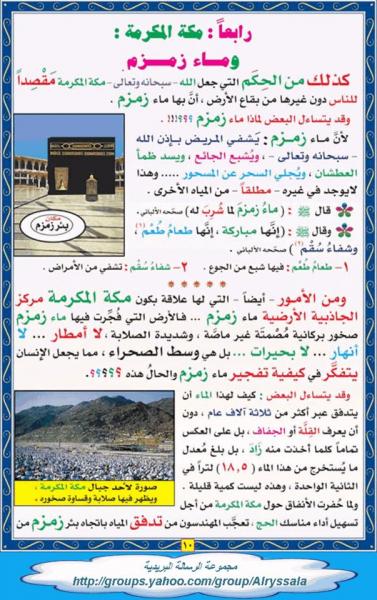 رابعاً : مكة المكرمة :
وماء زمزم
كذلك من الحِكَم التي جعل الله - سبحانه وتعالى - مكة المكرمة مَقْصِداً
للناس دون غيرها من بقاع الأرض ، أنَّ بها ماء زمزم .
وقد يتساءل البعض لماذا ماء زمزم ؟؟؟!! .
لأنَّ ماء زمـزم : يَشفي المريض بـإذن الله
- سبحانه وتعالى - ، ويُشبع الجائع ، ويسد ظمأ
العطشان ، ويُجلي السحر عن المسحور ..... وهذا
لايوجد في غيره - مطلقاً - من المياه الأخرى .
قال ﷺ : ( ماءُ زمزمَ لما شُرِبَ له ) صححه الألباني .
وقال ﷺ : ( إنَّها مباركة ، إنَّها طعامُ طُعْمٍ (١) ،
وشفاءُ سُقْمٍ (٢) ) صححه الألباني .
١- طعامُ طُعْمٍ : فيها شبع من الجوع . ٢- شفاءُ سُقْمٍ : تشفي من الأمراض .
مكان
بئر زمزم
ومن الأمـور - أيضاً - التي لها علاقة بكون مكة المكرمة مركز
الجاذبية الأرضية ماء زمزم ... فـالأرض التي فُجِّرت فيها ماء زمزم
صخور بركانية مُصْمَتة غير ماصَّة ، وشديدة الصلابة ، لا أمطار ... لا
أنهار ... لا بحيرات ... بل هي وسط الصحراء ، مما يجعل الإنسان
يتفكَّر في كيفية تفجير ماء زمزم والحالُ هذه ؟؟؟؟؟.
وقد يتساءل البعض : كيف لهذا الماء أن
يتدفق عبر أكثر من ثلاثة آلاف عام ، دون
أن يعرف القِلَّة أو الجفاف ، بل على العكس
تماماً كلما أخذت منه زَادَ ، بل بلغ مُعدل
ما يُستخرج من هذا الماء ( ١٨,٥ ) لتراً في
الثانية الواحدة ، وهذه ليست كمية قليلة .
ولما حُفرت الأنفاق حول مكة المكرمة من أجل
تسهيل أداء مناسك الحج ، تعجَّب المهندسون من تدفق المياه باتجاه بئر زمزم من
صورة لأحد جبال مكة المكرمة ،
ويظهر فيها صلابة وقساوة صخوره .
١٠
مجموعة الرسالة البريدية
http://groups.yahoo.com/group/Alryssala